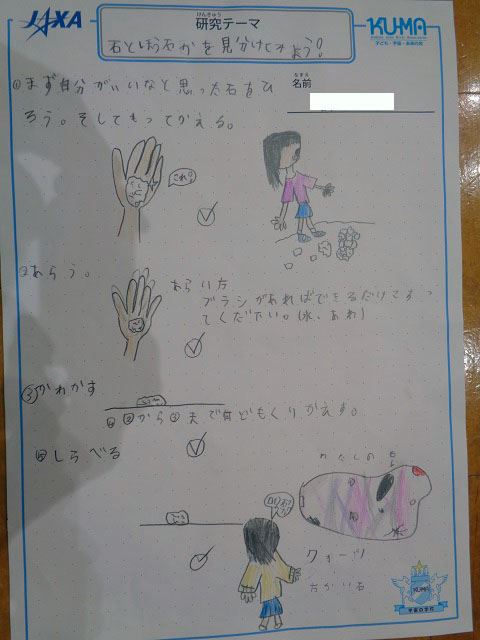 JAXA
けんきゅう
研究テーマ
KU-MA
子ども・宇宙・未来の会
石とほう石かを見分けてみよう!
なまえ
名前
①まず自分がいいなと思った石をひ
ろう。そしてもってかえる。
これ
②あらう。
あらい方
ブラシがあればできるだけこすっ
てください。(水、あわ)
③かわかす
①②から
まで何どもくりかえす。
④しらべる
わたしのも
クォーツ
KU-MA
宇宙の学校